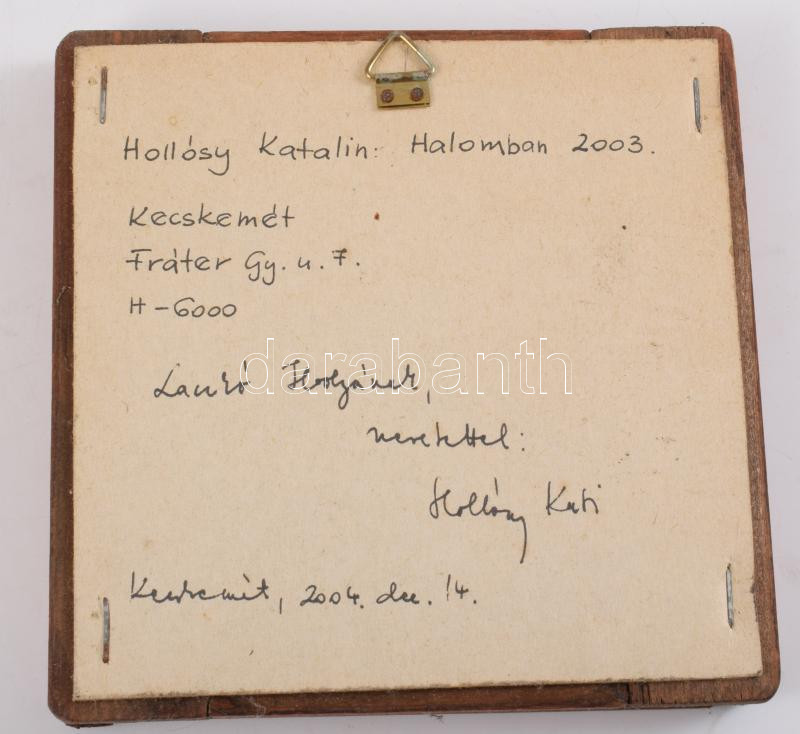 Hollósy Katalin: Halomban 2003.
Kecskemét
Fráter Gy. u. 7.
H-6000
darabanth
szeretettel:
Hollósy Kati
Kecskemét, 2004. dec. 14.